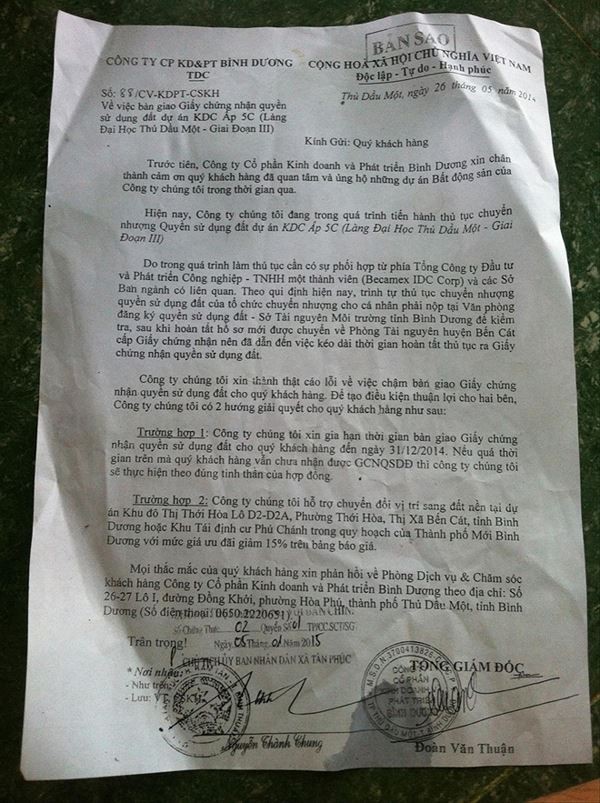 BẢN SAO
CÔNG TY CP KD&PT BÌNH DƯƠNG
TDC
CỘNG HOÀ XÃ HỘI CHỦ NGHĨA VIỆT NAM
Độc lập - Tự do - Hạnh phúc
Số: 88/CV-KDPT-CSKH
Thủ Dầu Một, ngày 26 tháng 05 năm 2014
Về việc bàn giao Giấy chứng nhận quyền
sử dụng đất dự án KDC Ấp 5C (Làng
Đại Học Thủ Dầu Một - Giai Đoạn III)
Kính Gửi: Quý khách hàng
Trước tiên, Công ty Cổ phần Kinh doanh và Phát triển Bình Dương xin chân
thành cảm ơn quý khách hàng đã quan tâm và ủng hộ những dự án Bất động sản của
Công ty chúng tôi trong thời gian qua.
Hiện nay, Công ty chúng tôi đang trong quá trình tiến hành thủ tục chuyển
nhượng Quyền sử dụng đất dự án KDC Ấp 5C (Làng Đại Học Thủ Dầu Một - Giai
Đoạn III)
Do trong quá trình làm thủ tục cần có sự phối hợp từ phía Tổng Công ty Đầu tư
và Phát triển Công nghiệp - TNHH một thành viên (Becamex IDC Corp) và các Sở
Ban ngành có liên quan. Theo qui định hiện nay, trình tự thủ tục chuyển nhượng
quyền sử dụng đất của tổ chức chuyển nhượng cho cá nhân phải nộp tại Văn phòng
đăng ký quyền sử dụng đất - Sở Tài nguyên Môi trường tỉnh Bình Dương để kiểm
tra, sau khi hoàn tất hồ sơ mới được chuyển về Phòng Tài nguyên huyện Bến Cát
cấp Giấy chứng nhận nên đã dẫn đến việc kéo dài thời gian hoàn tất thủ tục ra Giấy
chứng nhận quyền sử dụng đất.
Công ty chúng tôi xin thành thật cáo lỗi về việc chậm bàn giao Giấy chứng
nhận quyền sử dụng đất cho quý khách hàng. Để tạo điều kiện thuận lợi cho hai bên,
Công ty chúng tôi có 2 hướng giải quyết cho quý khách hàng như sau:
Trường hợp 1: Công ty chúng tôi xin gia hạn thời gian bàn giao Giấy chứng
nhận quyền sử dụng đất cho quý khách hàng đến ngày 31/12/2014. Nếu quá thời
gian trên mà quý khách hàng vẫn chưa nhận được GCNQSDĐ thì công ty chúng tôi
sẽ thực hiện theo đúng tinh thần của hợp đồng.
Trường hợp 2: Công ty chúng tôi hỗ trợ chuyển đổi vị trí sang đất nền tại dự
án Khu đô Thị Thới Hòa Lô D2-D2A, Phường Thới Hòa, Thị Xã Bến Cát, tỉnh Bình
Dương hoặc Khu Tái định cư Phú Chánh trong quy hoạch của Thành phố Mới Bình
Dương với mức giá ưu đãi giảm 15% trên bảng báo giá.
Mọi thắc mắc của quý khách hàng xin phản hồi về Phòng Dịch vụ & Chăm sóc
khách hàng Công ty Cổ phần Kinh doanh và Phát triển Bình Dương theo địa chỉ: Số
26-27 Lô I, đường Đồng Khởi, phường Hòa Phú, thành phố Thủ Dầu Một, tỉnh Bình
Dương (Số điện thoại: 0650.2220651).
Số Chứng Thực 02 Quyển Số 01 TPCC.SCT/SG
Trân trọng! Ngày 05 Tháng 01 Năm 2015
CHỦ TỊCH ỦY BAN NHÂN DÂN XÃ TÂN PHÚC
TỔNG GIÁM ĐỐC
* Nơi nhận:
- Như trên
- Lưu: VT
M.S.D.N: 3700413826
CÔNG TY
CỔ PHẦN
KINH DOANH
PHÁT TRIỂN
BÌNH DƯƠNG
Nguyễn Thành Chung
Đoàn Văn Thuận